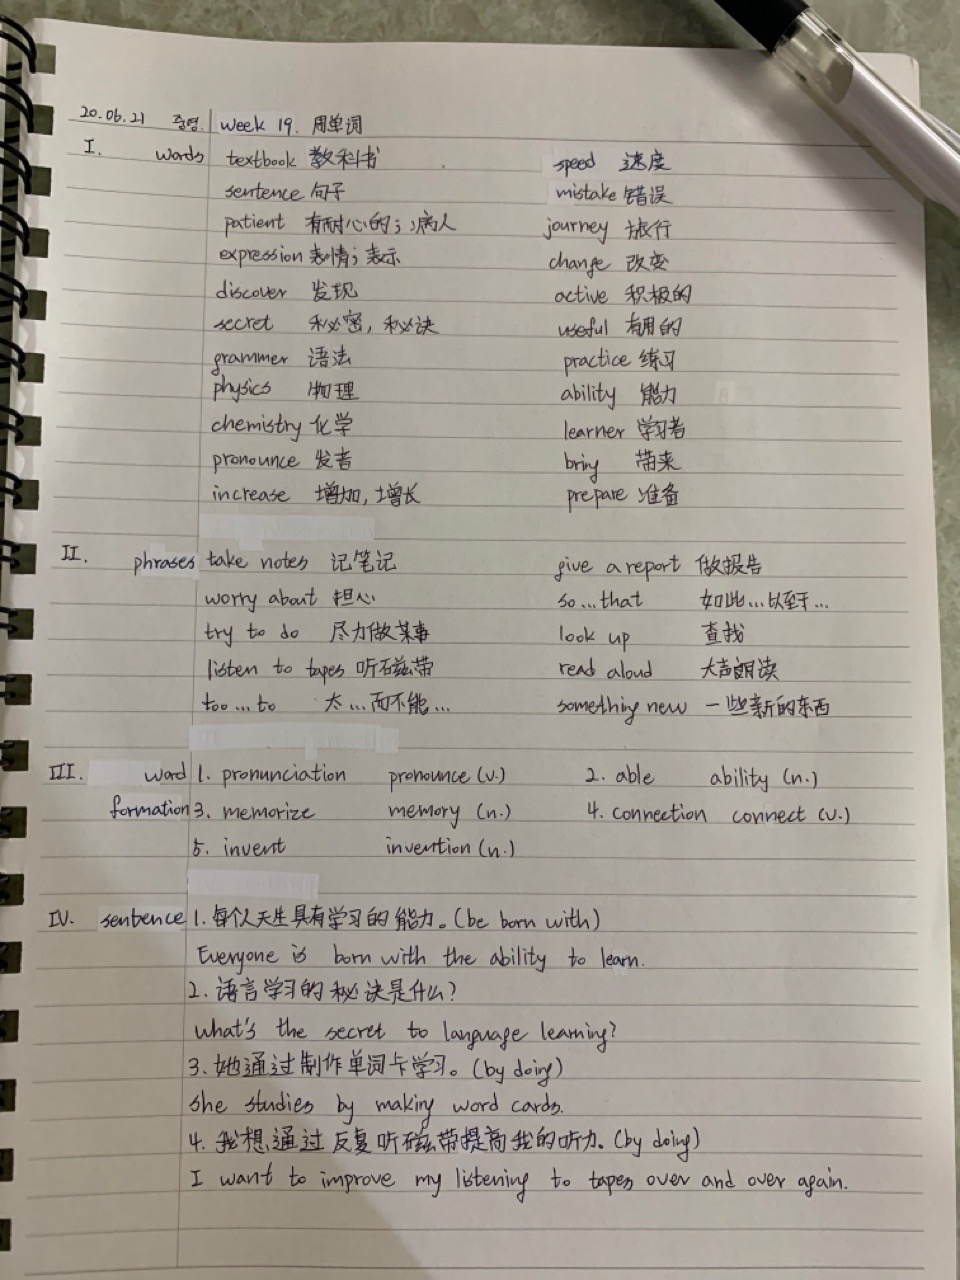 20.06.21 중영. Week 19. 周单词
I. words textbook 教科书 speed 速度
sentence 句子 mistake 错误
patient 有耐心的；病人 journey 旅行
expression 表情；表示 change 改变
discover 发现 active 积极的
secret 秘密，秘诀 useful 有用的
grammer 语法 practice 练习
physics 物理 ability 能力
chemistry 化学 learner 学习者
pronounce 发音 bring 带来
increase 增加，增长 prepare 准备
II. phrases take notes 记笔记 give a report 做报告
worry about 担心 so...that 如此...以至于...
try to do 尽力做某事 look up 查找
listen to tapes 听磁带 read aloud 大声朗读
too...to 太...而不能... something new 一些新的东西
III. word 1. pronunciation pronounce (v.) 2. able ability (n.)
formation 3. memorize memory (n.) 4. connection connect (v.)
5. invent invention (n.)
IV. sentence 1. 每个人天生具有学习的能力。(be born with)
Everyone is born with the ability to learn.
2. 语言学习的秘诀是什么?
what's the secret to language learning?
3. 她通过制作单词卡学习。(by doing)
she studies by making word cards.
4. 我想通过反复听磁带提高我的听力。(by doing)
I want to improve my listening to tapes over and over again.